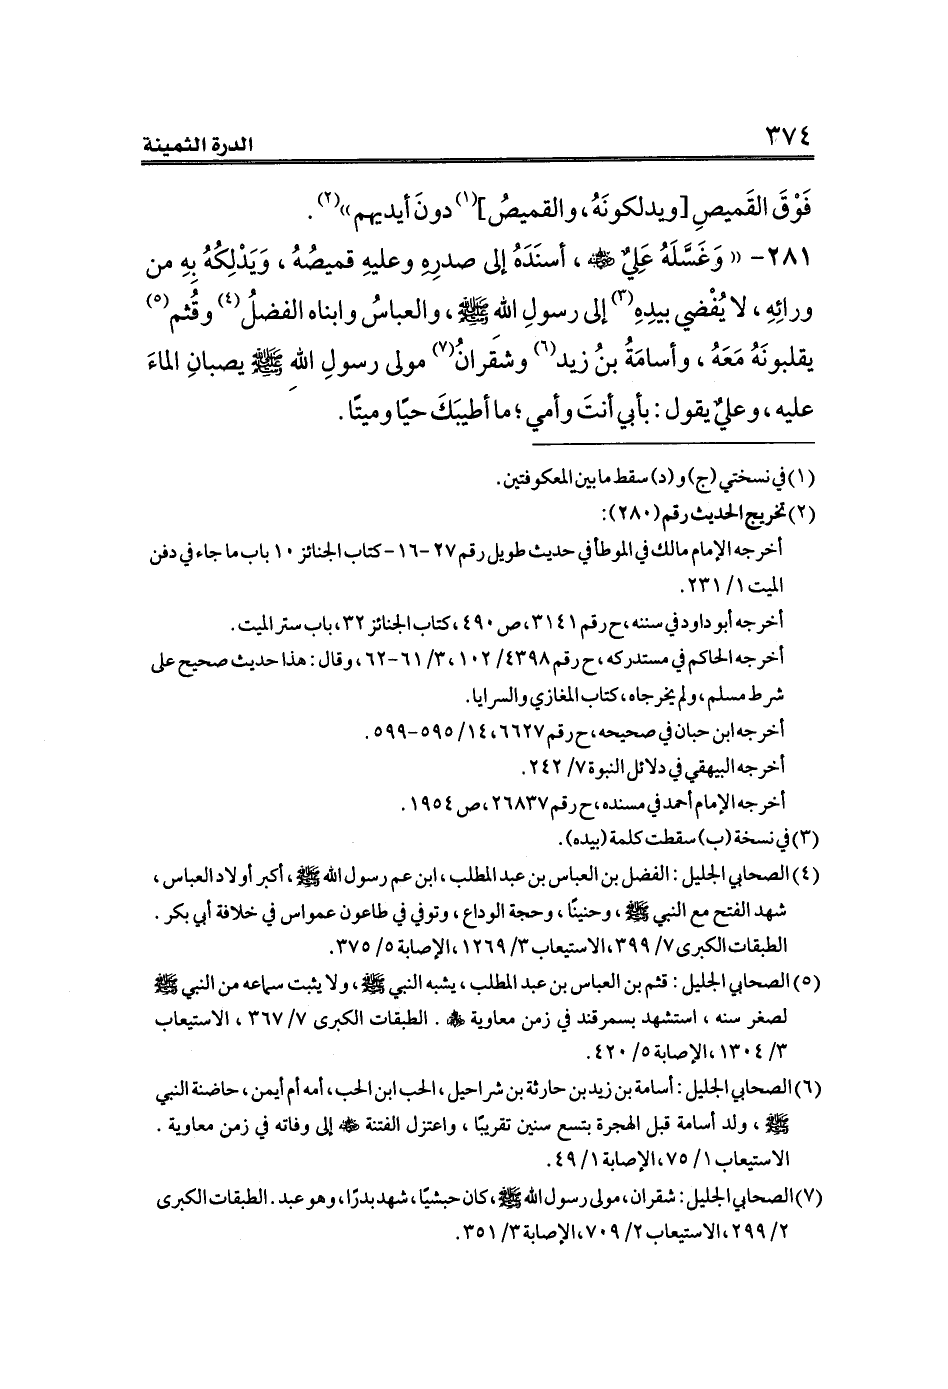 ٣٧٤
الدرة الثمينة
فَوْقَ القَميصِ [ويدلكونَهُ، والقميصُ](١) دونَ أيديهم»(٢).
٢٨١- «وَغَسَّلَهُ عَلِيٌّ ﷺ، أسنَدَهُ إلى صدرِهِ وعليهِ قميصُهُ، وَيَدْلِكُهُ بِهِ من
ورائِهِ، لا يُفْضي بيدِهِ(٣) إلى رسولِ اللهِ ﷺ، والعباسُ وابناه الفضلُ(٤) وقُثم(٥)
يقلبونَهُ مَعَهُ، وأسامَةُ بنُ زيد(٦) وشقرانُ(٧) مولى رسولِ اللهِ ﷺ يصبانِ الماءَ
عليه، وعليٌّ يقول: بأبي أنتَ وأمي؛ ما أطيبَكَ حيًا وميتًا.
(١) في نسختي (ج) و(د) سقط ما بين المعكوفتين.
(٢) تخريج الحديث رقم (٢٨٠):
أخرجه الإمام مالك في الموطأ في حديث طويل رقم ٢٧-١٦- كتاب الجنائز ١٠ باب ما جاء في دفن
الميت ١/ ٢٣١.
أخرجه أبو داود في سننه، ح رقم ٣١٤١، ص ٤٩٠، كتاب الجنائز ٣٢، باب ستر الميت.
أخرجه الحاكم في مستدركه، ح رقم ٤٣٩٨/ ١٠٢، ٣/ ٦١-٦٢، وقال: هذا حديث صحيح على
شرط مسلم، ولم يخرجاه، كتاب المغازي والسرايا.
أخرجه ابن حبان في صحيحه، ح رقم ٦٦٢٧، ١٤/ ٥٩٥-٥٩٩.
أخرجه البيهقي في دلائل النبوة ٧/ ٢٤٢.
أخرجه الإمام أحمد في مسنده، ح رقم ٢٦٨٣٧، ص ١٩٥٤.
(٣) في نسخة (ب) سقطت كلمة (بيده).
(٤) الصحابي الجليل: الفضل بن العباس بن عبد المطلب، ابن عم رسول الله ﷺ، أكبر أولاد العباس،
شهد الفتح مع النبي ﷺ، وحنينًا، وحجة الوداع، وتوفي في طاعون عمواس في خلافة أبي بكر.
الطبقات الكبرى ٧/ ٣٩٩، الاستيعاب ٣/ ١٢٦٩، الإصابة ٥/ ٣٧٥.
(٥) الصحابي الجليل: قثم بن العباس بن عبد المطلب، يشبه النبي ﷺ، ولا يثبت سماعه من النبي ﷺ
لصغر سنه، استشهد بسمرقند في زمن معاوية رضي الله عنه. الطبقات الكبرى ٧/ ٣٦٧، الاستيعاب
٣/ ١٣٠٤، الإصابة ٥/ ٤٢٠.
(٦) الصحابي الجليل: أسامة بن زيد بن حارثة بن شراحيل، الحب ابن الحب، أمه أم أيمن، حاضنة النبي
ﷺ، ولد أسامة قبل الهجرة بتسع سنين تقريبًا، واعتزل الفتنة رضي الله عنه إلى وفاته في زمن معاوية.
الاستيعاب ١/ ٧٥، الإصابة ١/ ٤٩.
(٧) الصحابي الجليل: شقران، مولى رسول الله ﷺ، كان حبشيًا، شهد بدرًا، وهو عبد. الطبقات الكبرى
٢/ ٢٩٩، الاستيعاب ٢/ ٧٠٩، الإصابة ٣/ ٣٥١.